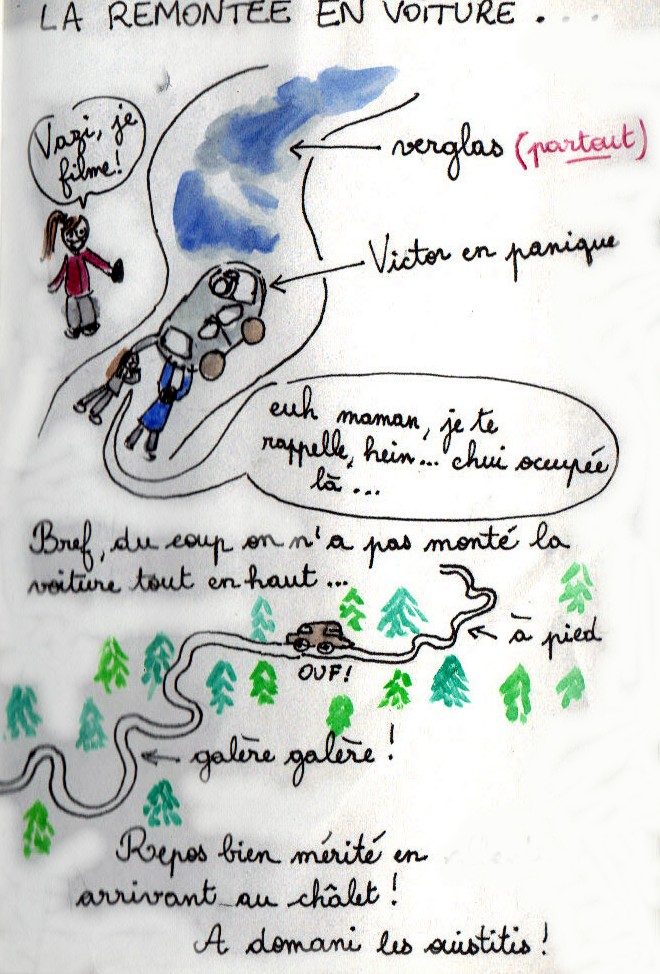 LA REMONTÉE EN VOITURE . . . .
Vazi, je
filme!
verglas (partout)
Victor en panique
euh maman, je te
rappelle, hein... chui occupée
là ...
Bref, du coup on n'a pas monté la
voiture tout en haut ...
à pied
OUF!
galère galère !
Repos bien mérité en
arrivant au châlet !
A domani les ouistitis !